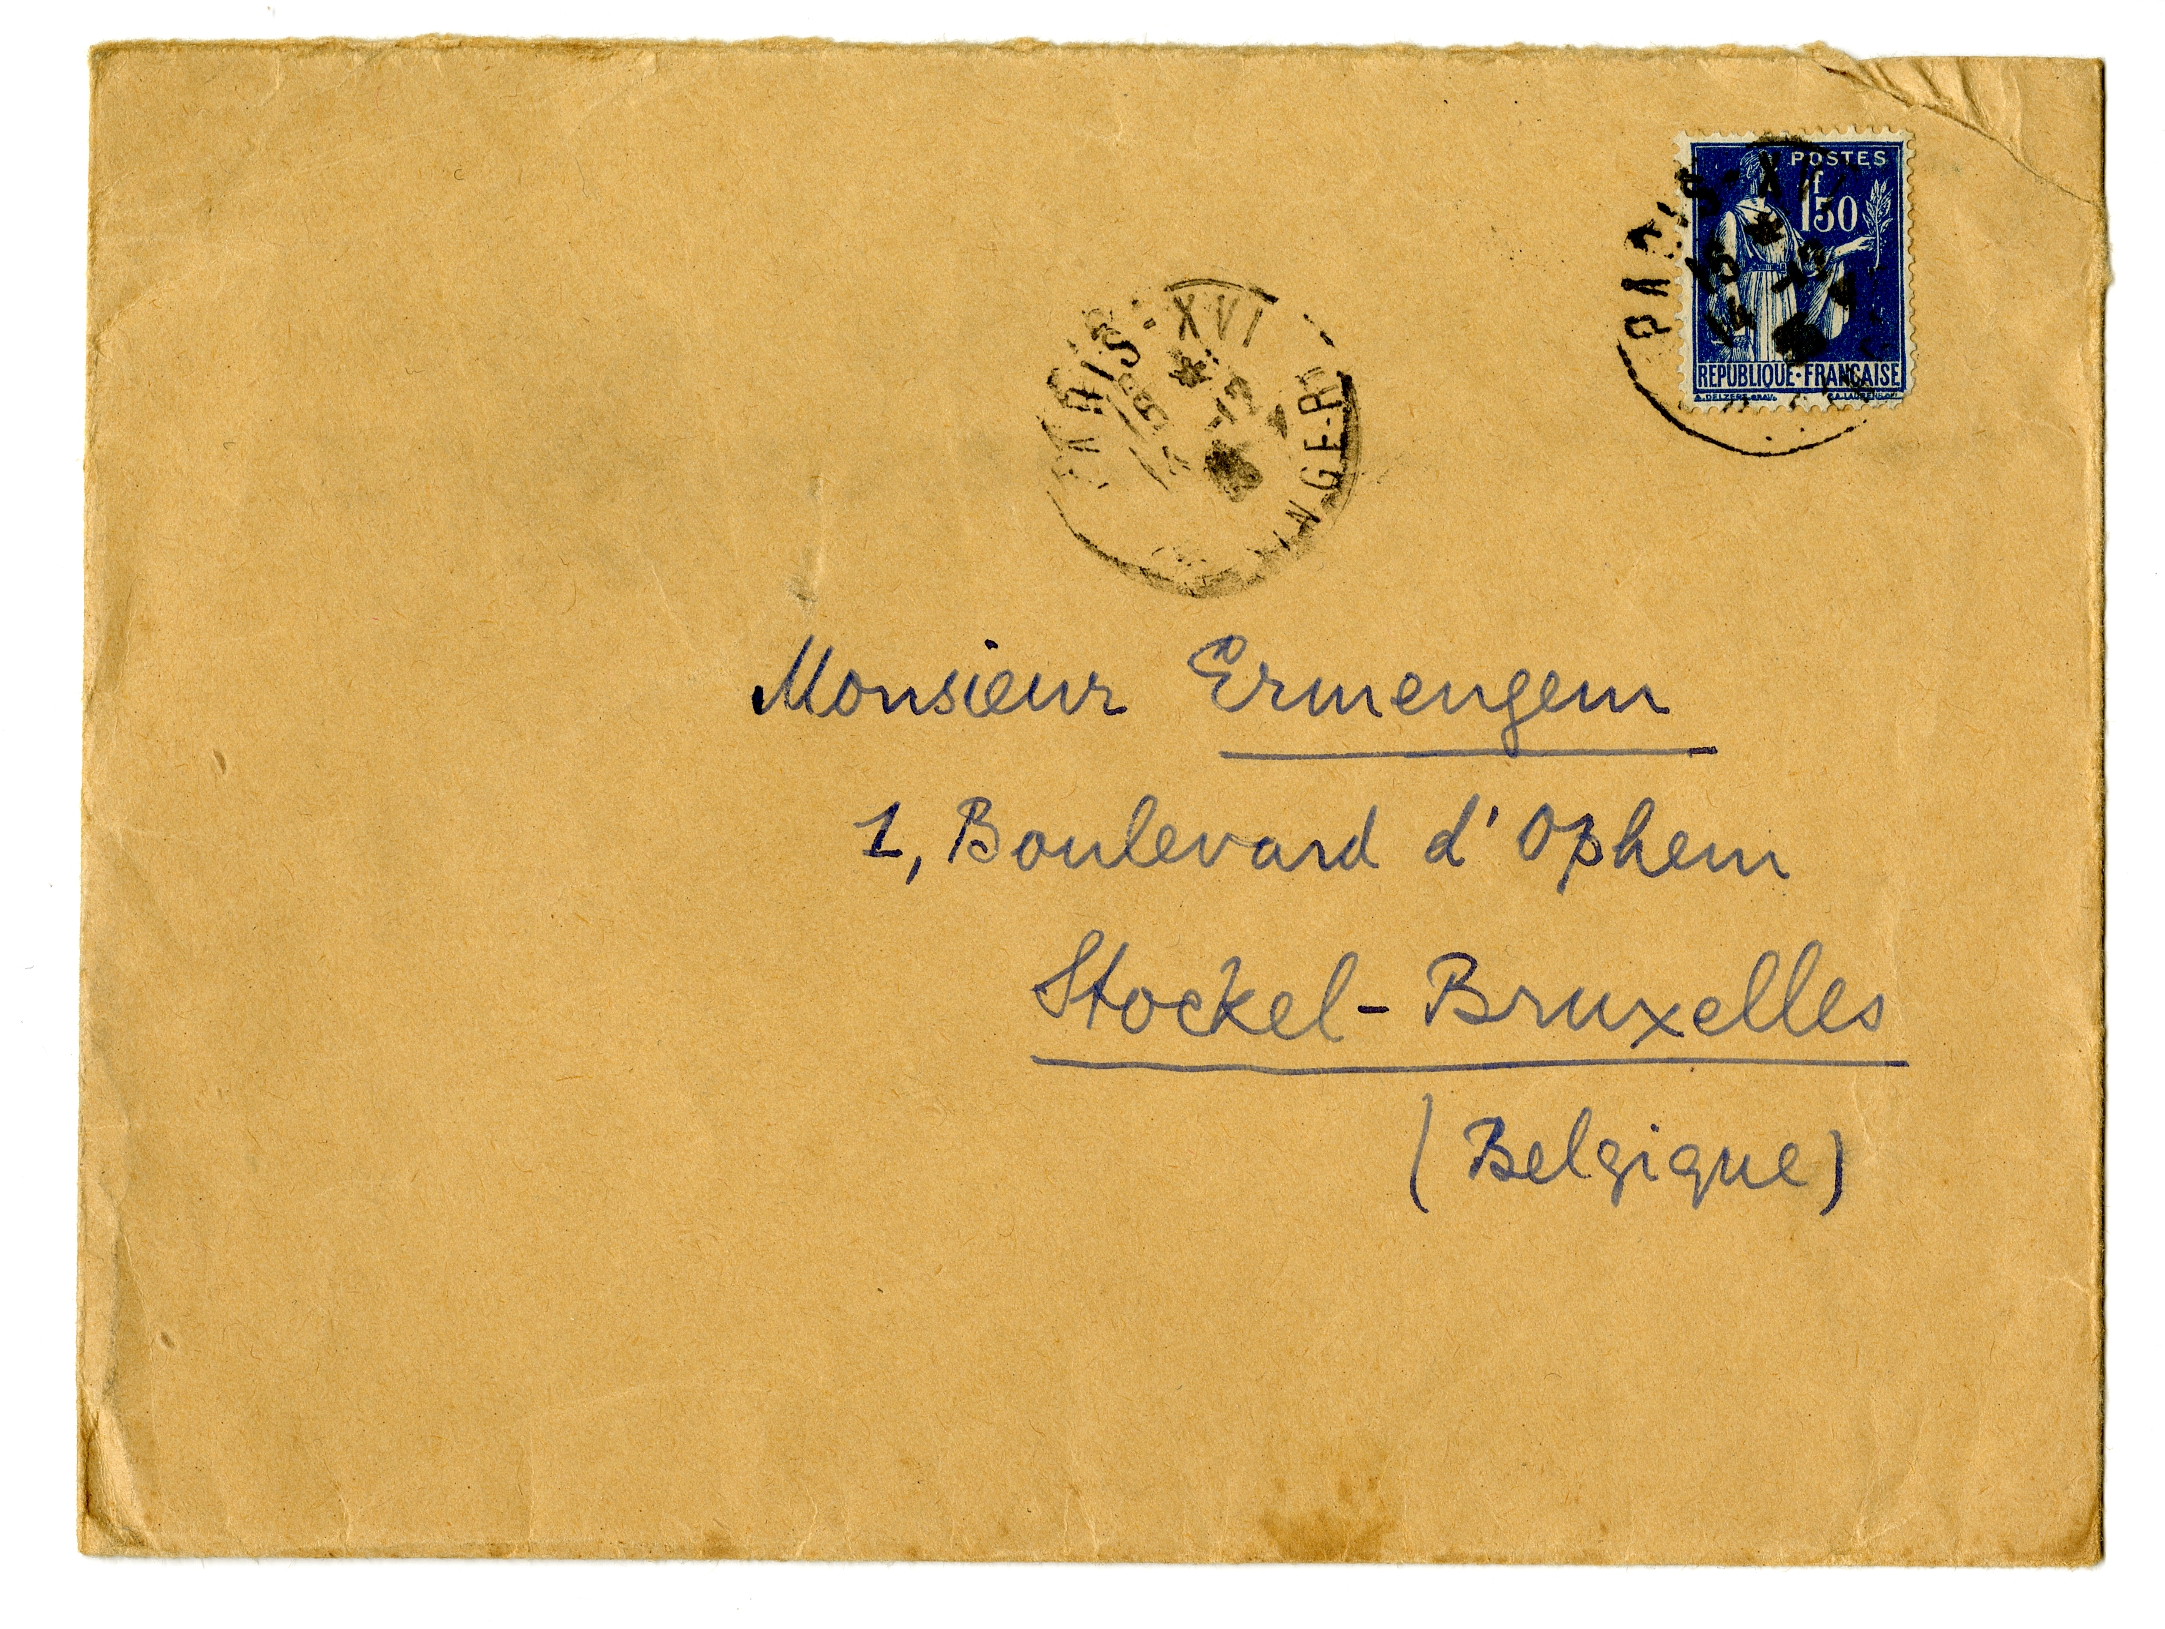 POSTES
1f50
REPUBLIQUE·FRANÇAISE
PARIS-XVI
PARIS-XVI
Monsieur Ermengem
1, Boulevard d'Ophem
Stockel-Bruxelles
(Belgique)